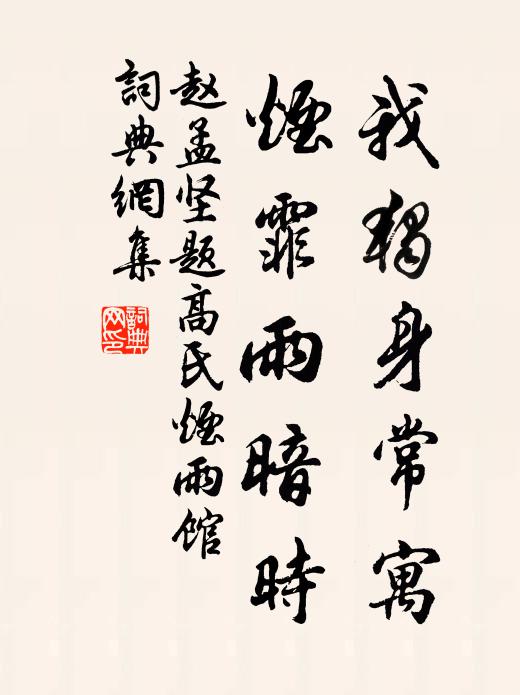 我独身常寓
煙霏雨暗時
赵孟坚题高氏煙雨馆
詞典網集
詞典网印